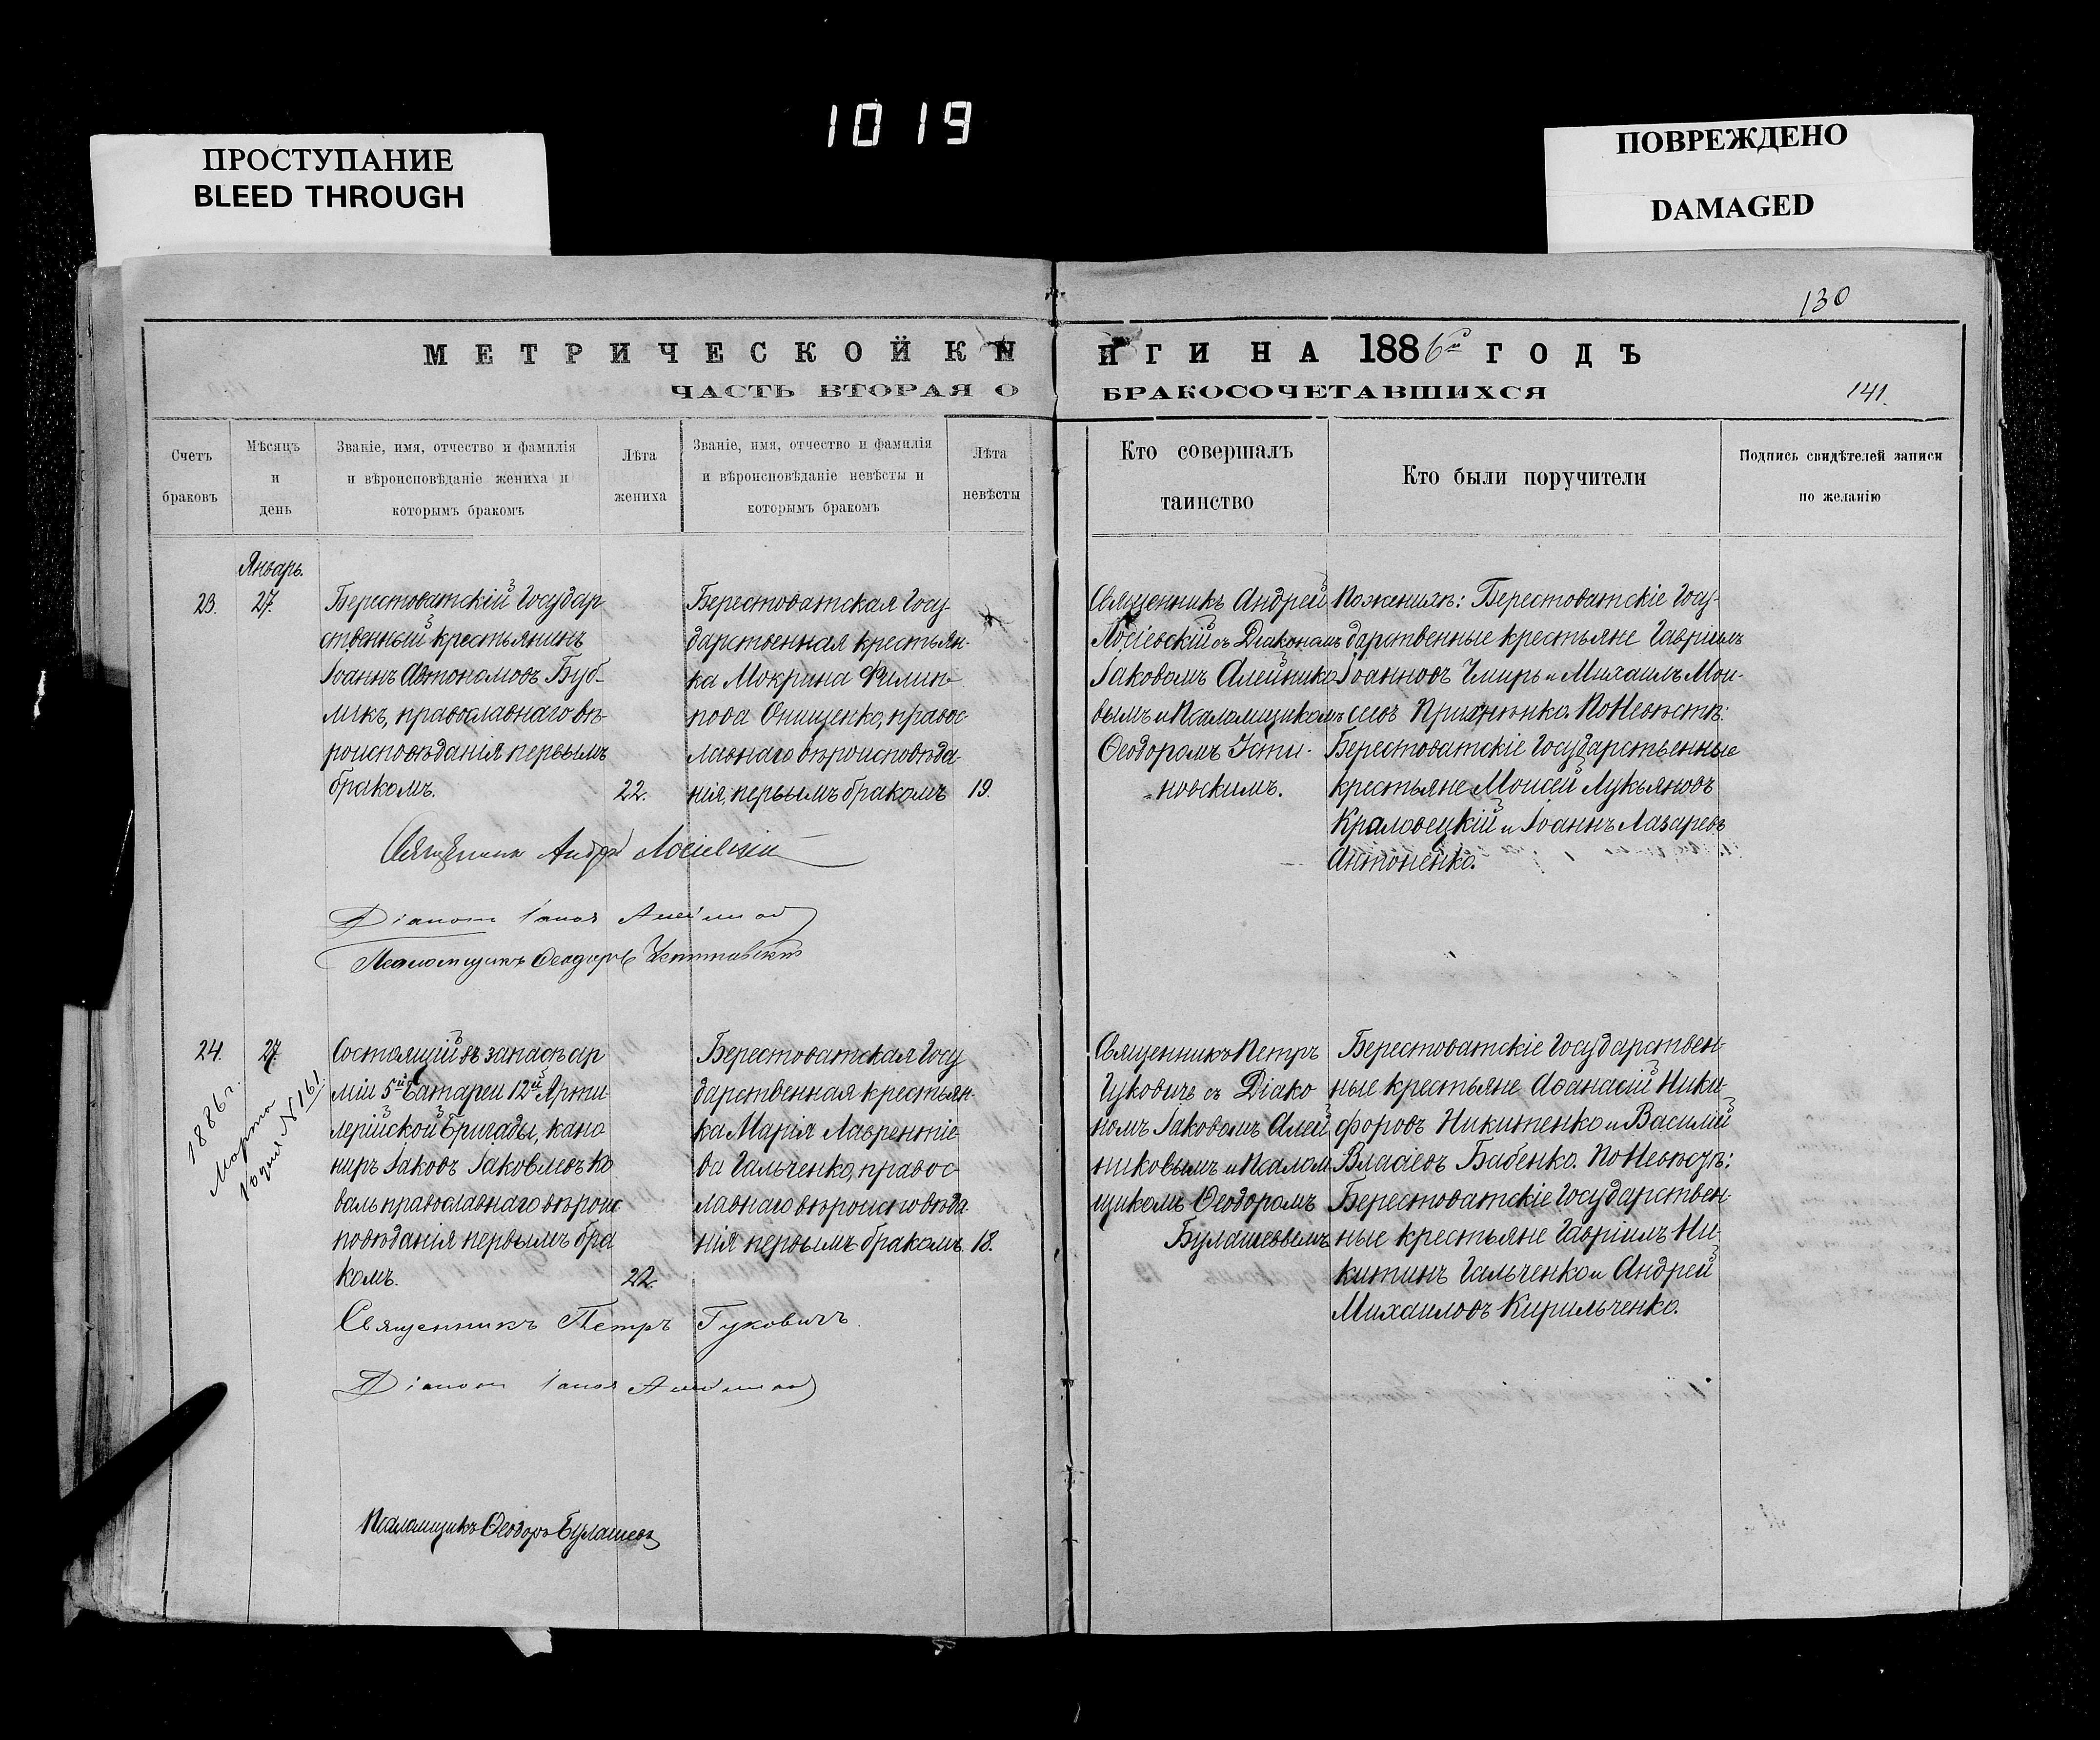 1019
ПРОСТУПАНИЕ
BLEED THROUGH
ПОВРЕЖДЕНО
DAMAGED
130
МЕТРИЧЕСКОЙ КНИГИ НА 1886й ГОДЪ
ЧАСТЬ ВТОРАЯ О БРАКОСОЧЕТАВШИХСЯ
141.
Счетъ
браковъ
Мѣсяцъ
и
день
Званіе, имя, отчество и фамилія
и вѣроисповѣданіе жениха и
которымъ бракомъ
Лѣта
жениха
Званіе, имя, отчество и фамилія
и вѣроисповѣданіе невѣсты и
которымъ бракомъ
Лѣта
невѣсты
Кто совершалъ
таинство
Кто были поручители
Подпись свидѣтелей записи
по желанію
Январь.
23.
27.
Берестоватскій Государ
ственный крестьянинъ
Іоаннъ Автономовъ Буб-
ликъ, православнаго вѣ-
роисповѣданія первымъ
бракомъ.
22.
Берестоватская Госу-
дарственная крестьян-
ка Мокрина Филип-
пова Онищенко, правос-
лавнаго вѣроисповѣда-
нія, первымъ бракомъ
19.
Священникъ Андрей
Лосіевскій съ Діакономъ
Іаковомъ Алейнико
вымъ и Псаломщикомъ
Ѳеодоромъ Усти-
новскимъ.
По женихѣ: Берестоватскіе Госу-
дарственные крестьяне Гавріилъ
Іоанновъ Чмирь и Михаилъ Мои-
сеевъ Прихненко. По Невѣстѣ:
Берестоватскіе Государственные
крестьяне Моисей Лукьяновъ
Краловецкій и Іоаннъ Лазаревъ
Антоненко.
Священникъ Андрей Лосіевскій
Діаконъ Іаковъ Алейниковъ
Псаломщикъ Ѳеодоръ Устиновскій
24.
27.
1886 г.
Марта
1 годня № 161.
Состоящій въ запасѣ ар
міи 5й Батареи 12й Арти-
лерійской Бригады, кано
ниръ Іаковъ Іаковлевъ Ко
валь православнаго вѣроис
повѣданія первымъ бра
комъ.
22.
Берестоватская Госу
дарственная крестьян-
ка Марія Лаврентіе
ва Гальченко, правос
лавнаго вѣроисповѣда-
нія первымъ бракомъ.
18.
Священникъ Петръ
Гуковичъ съ Діако
номъ Іаковомъ Алей
никовымъ и Псалом
щикомъ Ѳеодоромъ
Булашевымъ
Берестоватскіе Государствен-
ные крестьяне Аѳанасій Ники-
форовъ Никитенко и Василій
Власіевъ Бабенко. По Невѣстѣ:
Берестоватскіе Государствен-
ные крестьяне Гавріилъ Ни-
китинъ Гальченко и Андрей
Михаиловъ Кирильченко.
Священникъ Петръ Гуковичъ.
Діаконъ Іаковъ Алейниковъ
Псаломщикъ Ѳеодоръ Булашевъ